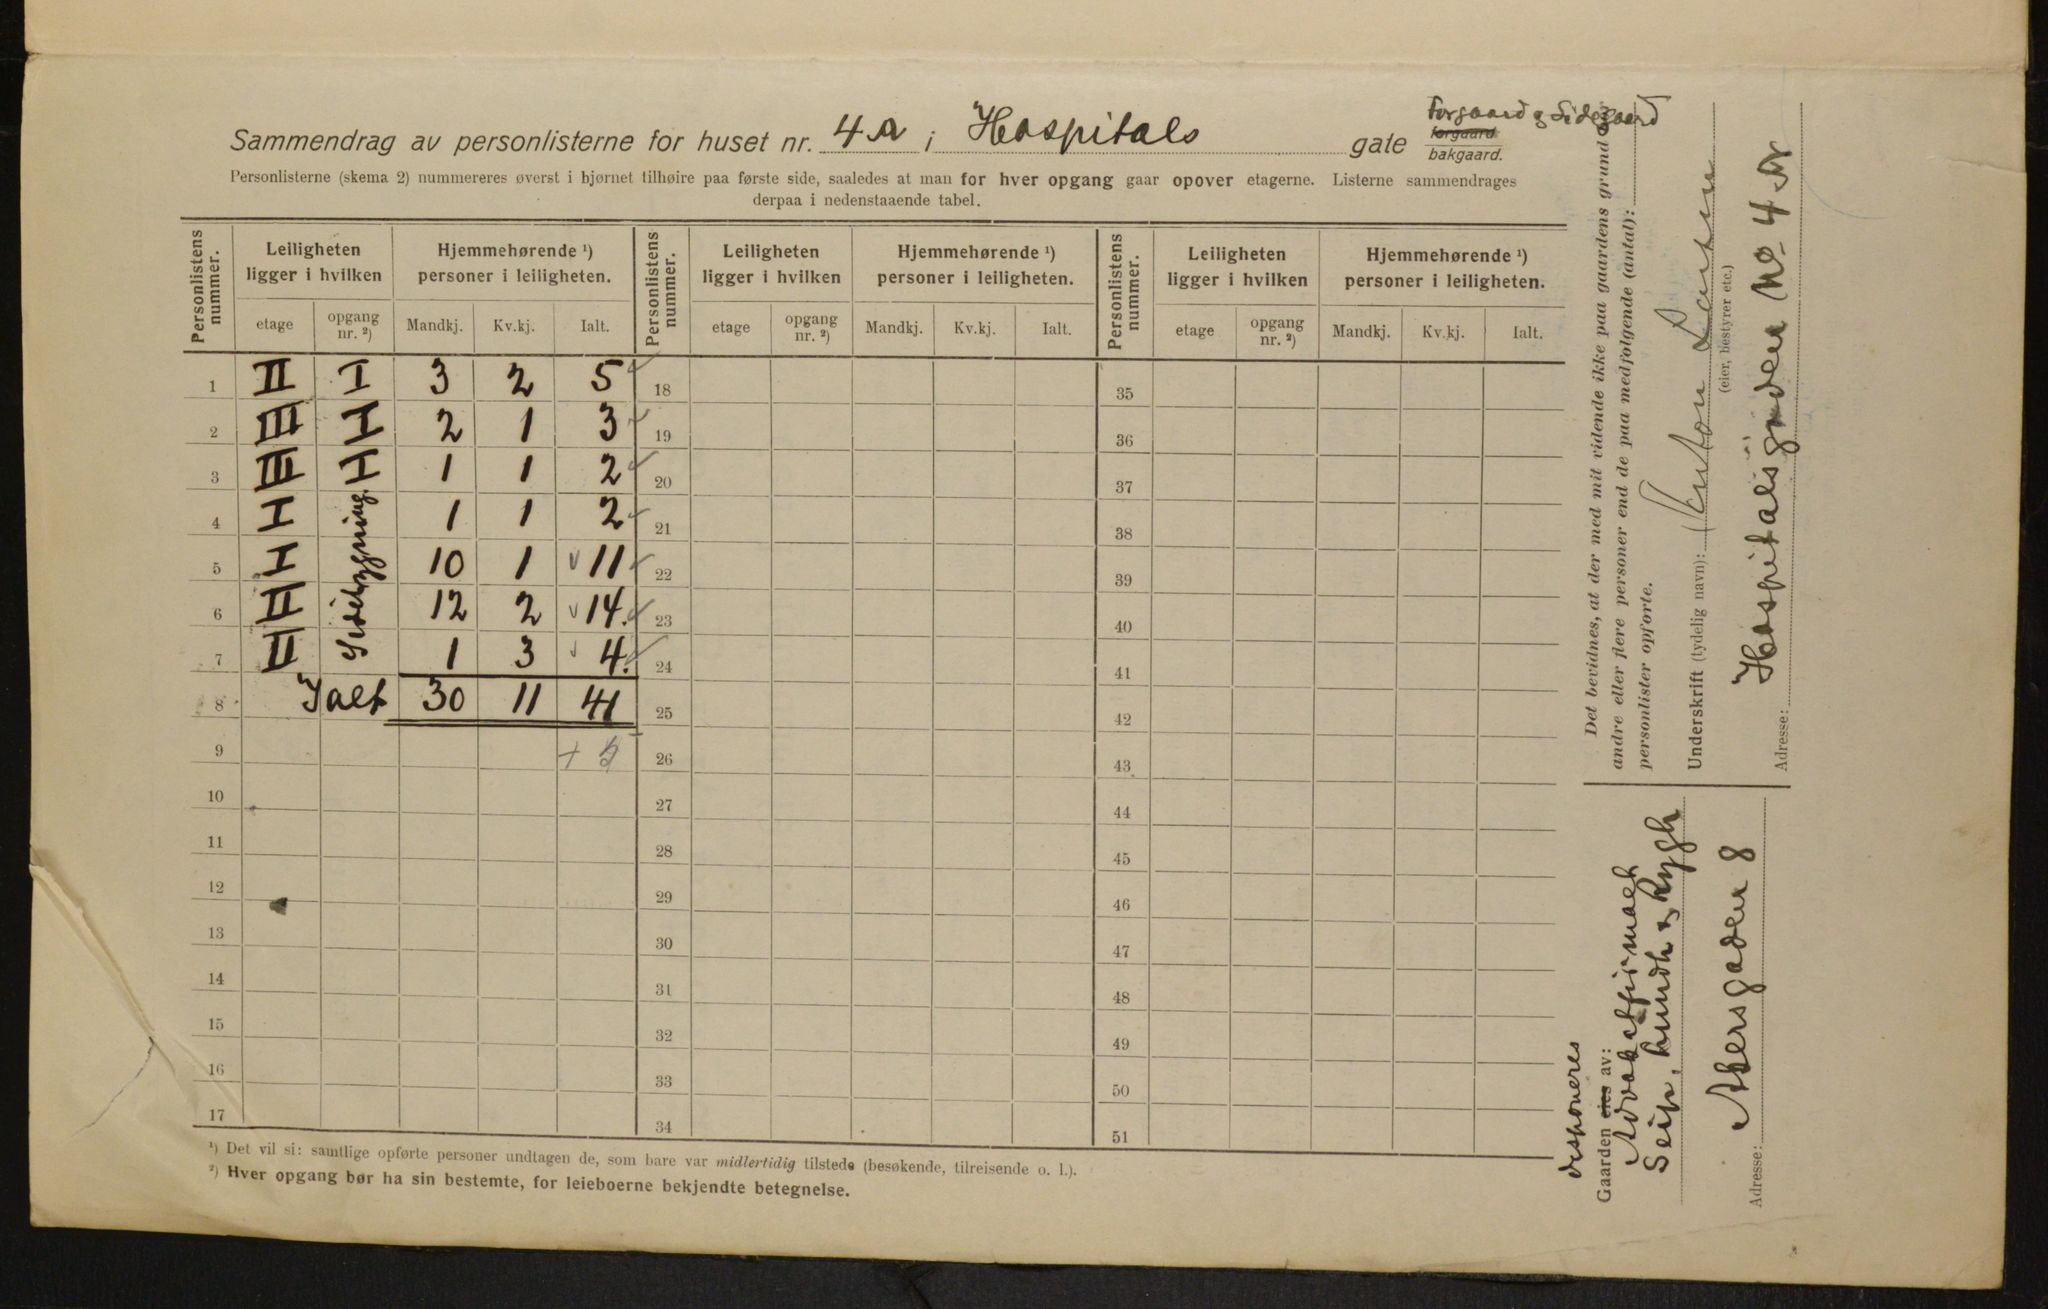 Sammendrag av personlisterne for huset nr. 4a i Hospitals gate forgaard bakgaard.
Forgaard og Sidegaard
Personlisterne (skema 2) nummereres øverst i hjørnet tilhøire paa første side, saaledes at man for hver opgang gaar opover etagerne. Listerne sammendrages
derpaa i nedenstaaende tabel.
Personlistens nummer. Leiligheten ligger i hvilken Hjemmehørende ¹) personer i leiligheten. Personlistens nummer. Leiligheten ligger i hvilken Hjemmehørende ¹) personer i leiligheten. Personlistens nummer. Leiligheten ligger i hvilken Hjemmehørende ¹) personer i leiligheten.
etage opgang nr. ²) Mandkj. Kv.kj. Ialt. etage opgang nr. ²) Mandkj. Kv.kj. Ialt. etage opgang nr. ²) Mandkj. Kv.kj. Ialt.
1 II I 3 2 5 18 35
2 III I 2 1 3 19 36
3 III I 1 1 2 20 37
4 I Sidebygning. 1 1 2 21 38
5 I 10 1 11 22 39
6 II 12 2 14. 23 40
7 II 1 3 4. 24 41
8 Ialt 30 11 41 25 42
9 + 5 26 43
10 27 44
11 28 45
12 29 46
13 30 47
14 31 48
15 32 49
16 33 50
17 34 51
¹) Det vil si: samtlige opførte personer undtagen de, som bare var midlertidig tilstede (besøkende, tilreisende o. l.).
²) Hver opgang bør ha sin bestemte, for leieboerne bekjendte betegnelse.
Det bevidnes, at der med mit vidende ikke paa gaardens grund bor
andre eller flere personer end de paa medfølgende (antal):
personlister opførte.
Underskrift (tydelig navn): Anton Larsen
(eier, bestyrer etc.)
Adresse: Hospitalsgaden No 4 A
disponeres
Gaarden eies av:
Advokatfirmaet
Seip, Lundh og Rygh
Adresse: Akersgaden 8